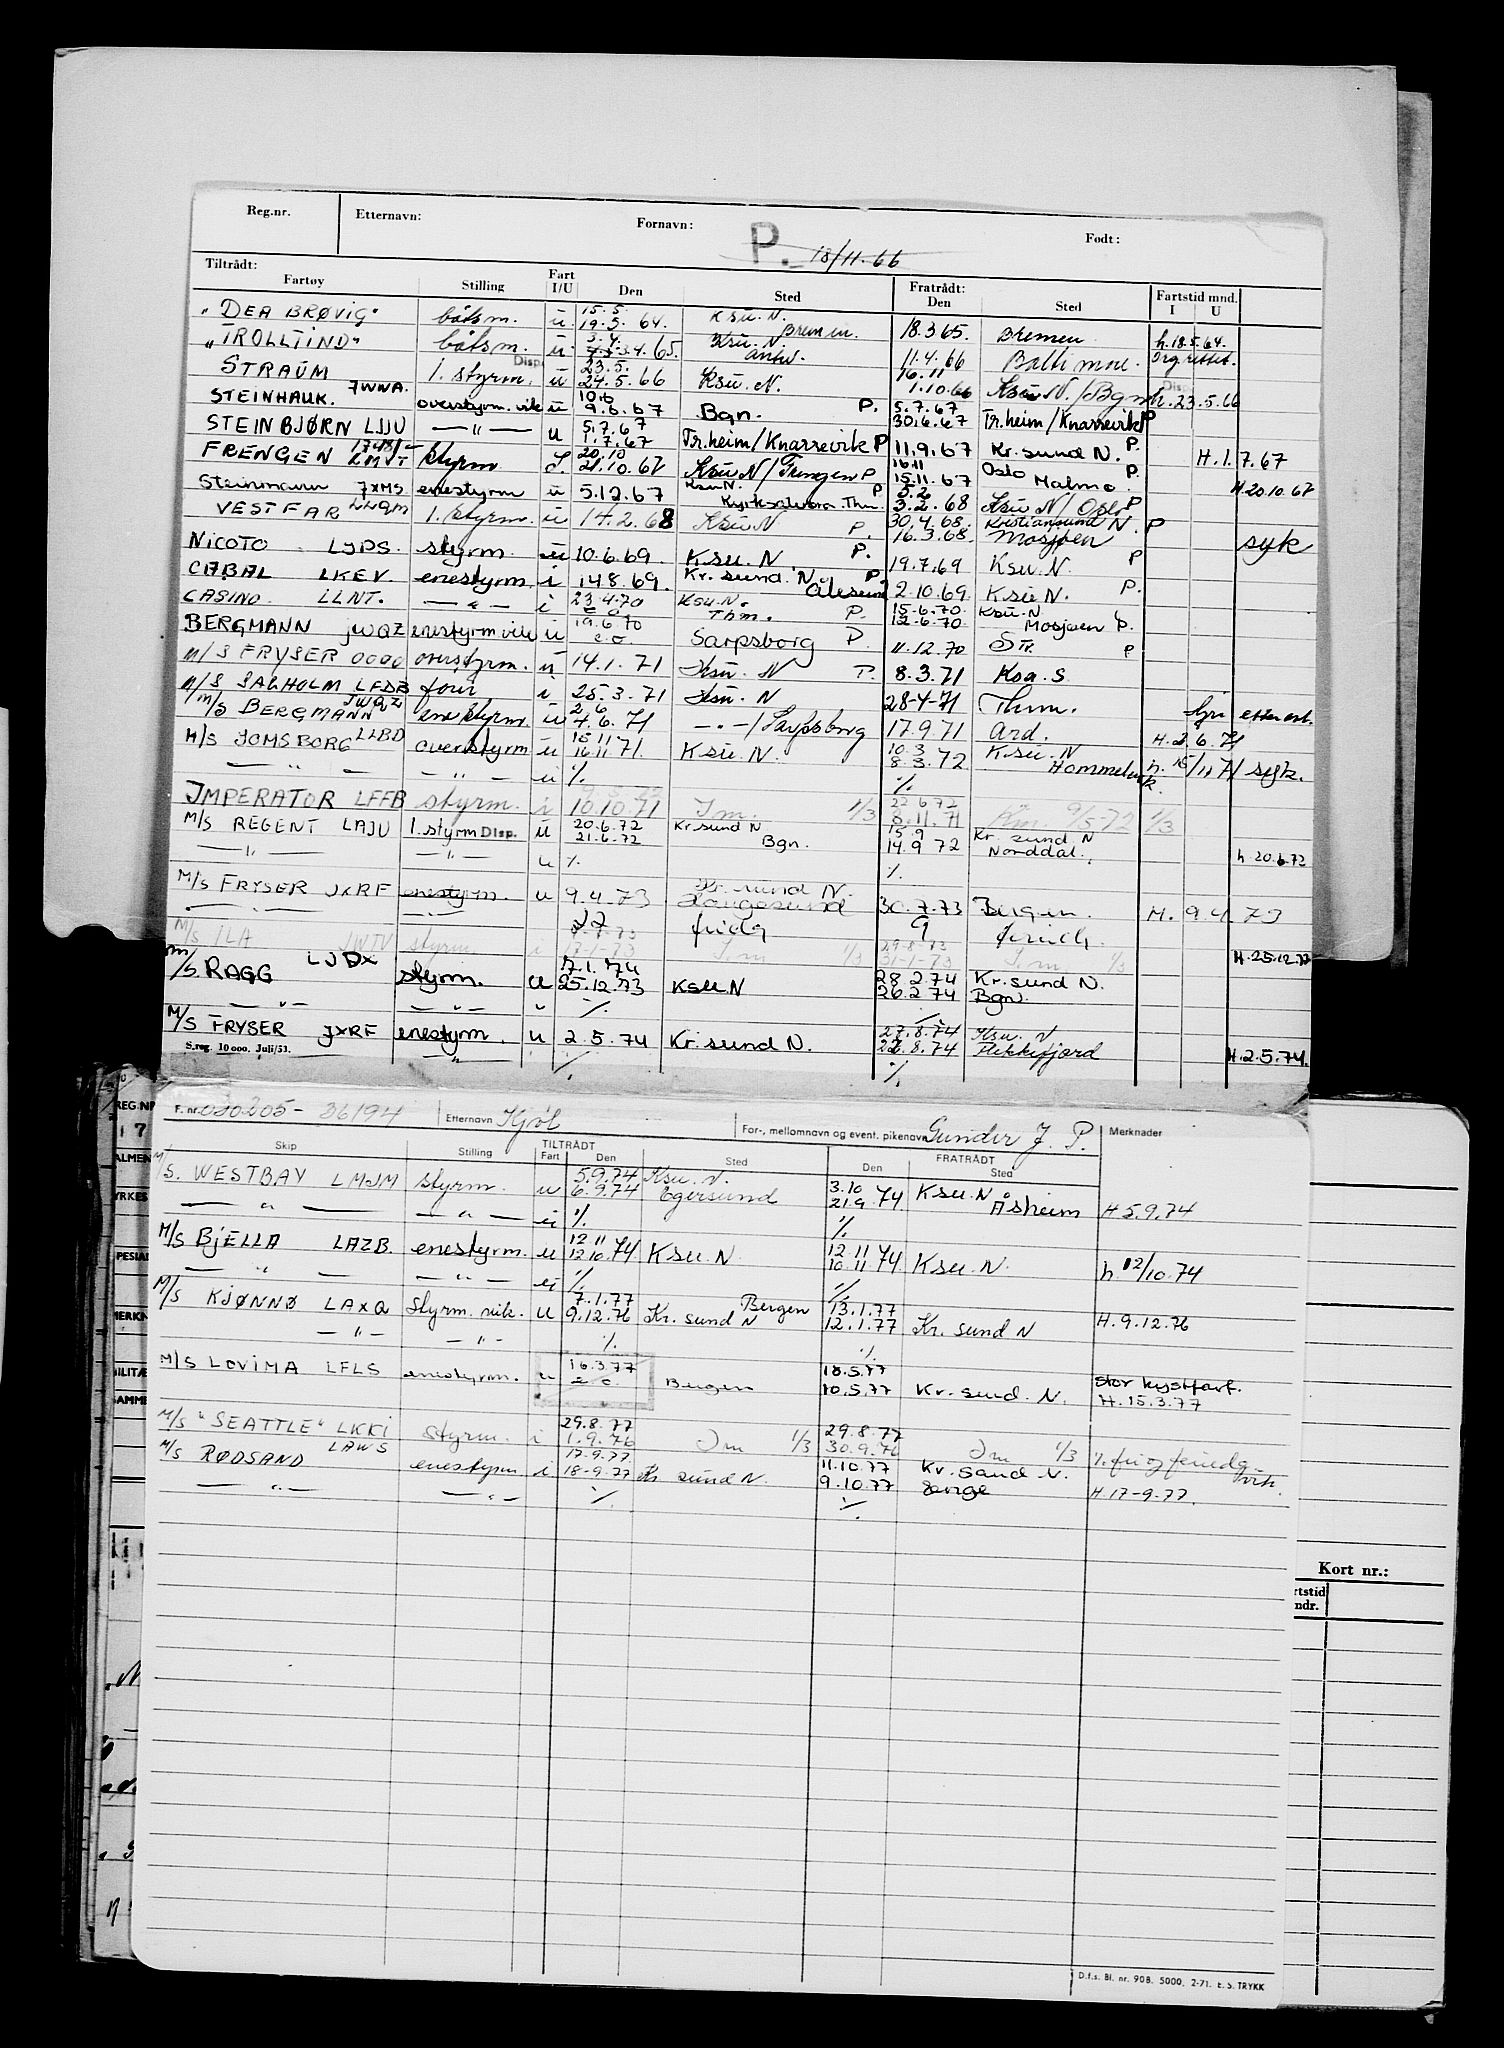 Reg.nr. Etternavn: Fornavn: Født:
P. 18/11.66
Tiltrådt: Fartøy Stilling Fart I/U Den Sted Fratrådt: Den Sted Fartstid mnd. I U
"DEA BRØVIG" båtsm. u 15.5. 19.5. 64. Ksu. N. Bremen 18.3 65. Bremen h. 18.5.64.
"TROLLTIND" båtsm. u 3.4. 3.4.65. Ksu. N. Antw. 11.4.66 Baltimore
STRAUM 1. styrm. Disp. u 23.5. 24.5.66 Ksu. N. 16.11 1.10.66 Ksu N./Bgn h. 23.5.66 Disp.
STEINHAUK. JWWA. overstyrm. vik u 10.6 9.6.67 Bgn. P. 5.7.67 30.6.67 Tr.heim/Knarrevik P
STEINBJØRN LJJU —"— u 5.7.67 1.7.67 Tr.heim/Knarrevik P 11.9.67 Kr.sund N. P. H.1.7.67
FRENGEN styrm 20.10 21.10.67 Ksu N/Frengen P 16.11 15.11.67 Oslo Malmø P. H 20.10.67
Steinmann JXMS enestyrm u 5.12.67 Ksu N. P 5.2 3.2.68 Ksu N/Oslo P
VESTFAR 1. styrm. u 14.2.68 Ksu N P. 30.4.68. 16.3.68. Kristiansund N. P Mosjøen syk
NICOTO LJPS. styrm. u 10.6.69. Ksu. N P. 19.7.69 Ksu. N. P
CABAL LKEV enestyrm i 14.8.69. Kr.sund. N P. Ålesund 2.10.69 Ksu N. P.
CASINO. LLNT. —"— i 23.4.70 Ksu. N. Thm. P. 15.6.70. 12.6.70 Ksu. N Mosjøen P.
BERGMANN JWQZ enestyrm vik u 19.6.70 Sarpsborg P. 11.12.70 P
M/S FRYSER overstyrm. u 14.1.71 Ksu. N P. 8.3.71 Ksa. S.
M/S SAGHOLM LFDB i 25.3.71 Ksu. N 28-4-71 Thm.
M/S BERGMANN JWQZ enestyrm. u 2.6 4.6.71 —"—/Sarpsborg 17.9.71 Ard. H.2.6.71
M/S JOMSBORG LLBD overstyrm u 15.11 16.11.71. Ksu. N. 10.3 8.3.72 Ksu. N Hommelvik. h. 15/11.71 syk.
—"— —"— u ./. ./.
IMPERATOR LFFB styrm. i 10.10.71 Im. 1/3 22.6.72 8.11.71 9/5-72 1/3
M/S REGENT LAJU 1. styrm Disp. u 20.6.72 21.6.72 Kr.sund N Bgn. 15.9 14.9 72 Kr. sund N Norddal. h. 20.6.72
—"— —"— u ./. ./.
M/S FRYSER JXRF enestyrm. u 9.4.73 Kr.sund N. Langesund 30.7.73 Bergen. H. 9.4 73
—"— —"—
M/S ILA JWTV styrm. i 17-1-73 Im 1/3 29.8.73 31-1-73 Im 1/3
M/S. RAGG LJDX styrm. u 7.1.74 25.12.73 Ksu N 28.2.74 26.2.74 Kr.sund N. Bgn. H.25.12.77
—"— —"— " ./. ./.
M/S FRYSER JXRF enestyrm. u 2.5.74 Kr.sund N. 27.8.74 22.8.74 Ksu. N Flekkefjord H.2.5.74.
S.reg. 10 000. Juli/53. " ./. ./.
F. nr. 030205- 36194 Etternavn Kjøl For-, mellomnavn og event. pikenavn Gunder J. P. Merknader
Skip Stilling TILTRÅDT Fart Den Sted FRATRÅDT Den Sted
M/S. WESTBAY LMJM styrm. u 5.9.74 6.9.74 Ksu. N. Egersund 3.10 21.9.74 Ksu. N Åsheim H 5.9.74
—"— —"— u ./. ./.
M/S BJELLA LAZB. enestyrm. u 12.11 12.10.74 Ksu. N 12.11 10.11 74 Ksu. N. h 12/10.74
—"— —"— u ./. ./.
M/S KJØNNØ LAXQ Styrm. vik. u 7.1.77 9.12.76 Kr. sund N Bergen 13.1.77 12.1.77 Kr. sund N H. 9.12.76
—"— —"— ./. ./.
M/S LOVIMA LFLS enestyrm. u 16.3.77 Bergen 18.5.77 10.5.77 Kr. sund. N. Stor kystfart. H. 15.3.77
M/S "SEATTLE" LKKI styrm. i 29.8.77 1.9.76 Im 1/3 29.8.77 30.9.76 Im 1/3
M/S RØDSAND LAWS enestyrm i 17.9.77 18-9.77 Kr. sund N. 11.10.77 9.10.77 Kr. sand. N. H 17-9.77.
—"— —"— ./. ./.
Kort nr.:
D.f.s. Bl. nr. 908. 5000, 2-71. E. S. TRYKK